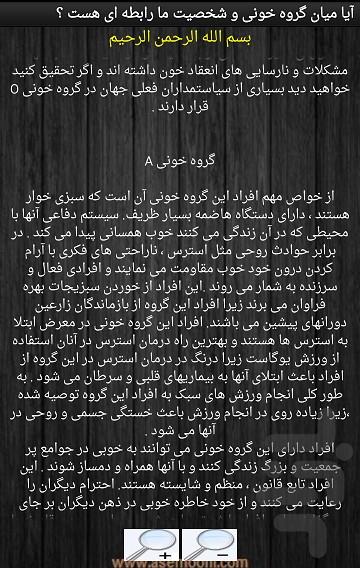 آیا میان گروه خونی و شخصیت ما رابطه ای هست ؟
بسم الله الرحمن الرحیم
مشکلات و نارسایی های انعقاد خون داشته اند و اگر تحقیق کنید
خواهید دید بسیاری از سیاستمداران فعلی جهان در گروه خونی O
قرار دارند .
گروه خونی A
از خواص مهم افراد این گروه خونی آن است که سبزی خوار
هستند ، دارای دستگاه هاضمه بسیار ظریف. سیستم دفاعی آنها با
محیطی که در آن زندگی می کنند خوب همسانی پیدا می کند . در
برابر حوادث روحی مثل استرس ، ناراحتی های فکری با آرام
کردن درون خود خوب مقاومت می نمایند و افرادی فعال و
سرزنده به شمار می روند .این افراد از خوردن سبزیجات بهره
فراوان می برند زیرا افراد این گروه از بازماندگان زارعین
دورانهای پیشین می باشند. افراد این گروه خونی در معرض ابتلا
به استرس ها هستند و بهترین راه درمان استرس در آنان استفاده
از ورزش یوگاست زیرا درنگ در درمان استرس در این گروه از
افراد باعث ابتلای آنها به بیماریهای قلبی و سرطان می شود . به
طور کلی انجام ورزش های سبک به افراد این گروه توصیه شده
،زیرا زیاده روی در انجام ورزش باعث خستگی جسمی و روحی در
آنها می شود .
افراد دارای این گروه خونی می توانند به خوبی در جوامع پر
جمعیت و بزرگ زندگی کنند و با آنها همراه و دمساز شوند . این
افراد تابع قانون ، منظم و شایسته هستند. احترام دیگران را
رعایت می کنند و از خود خاطره خوبی در ذهن دیگران بر جای
+ −
www.asemooni.com